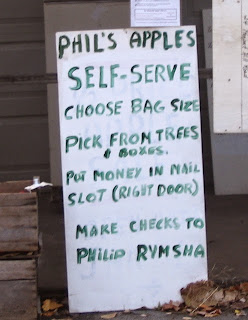 PHIL'S APPLES
SELF-SERVE
CHOOSE BAG SIZE
PICK FROM TREES
& BOXES.
PUT MONEY IN MAIL
SLOT (RIGHT DOOR)
MAKE CHECKS TO
PHILIP RYMSHA